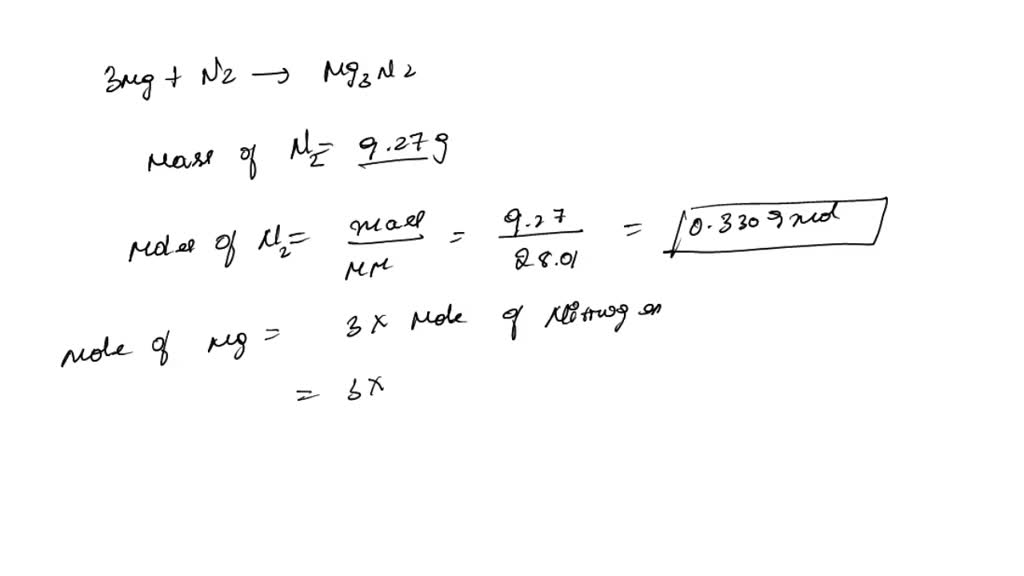 3Mg + N2 → Mg3N2
Mass of N2 = 9.27g
Moles of N2 = mass/MM = 9.27/28.01 = 0.3309 mol
Mole of Mg = 3 x Mole of Nitrogen
= 3 x